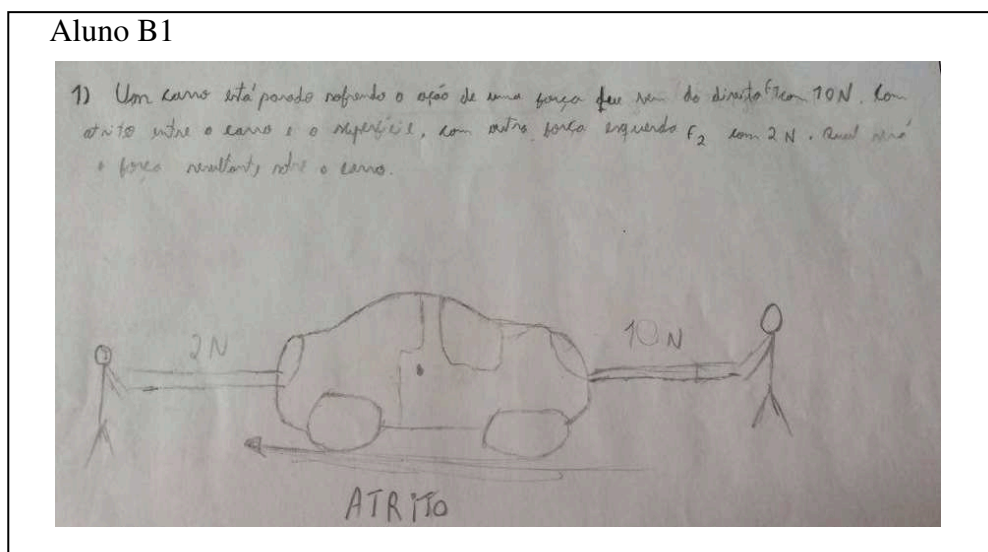 Aluno B1
1) Um carro está parado sofrendo a ação de uma força que vem da direita F1 com 10N. Com
atrito entre o carro e a superfície, com outra força esquerda F2 com 2 N. Qual será
a força resultante sobre o carro.
2N
10N
ATRITO